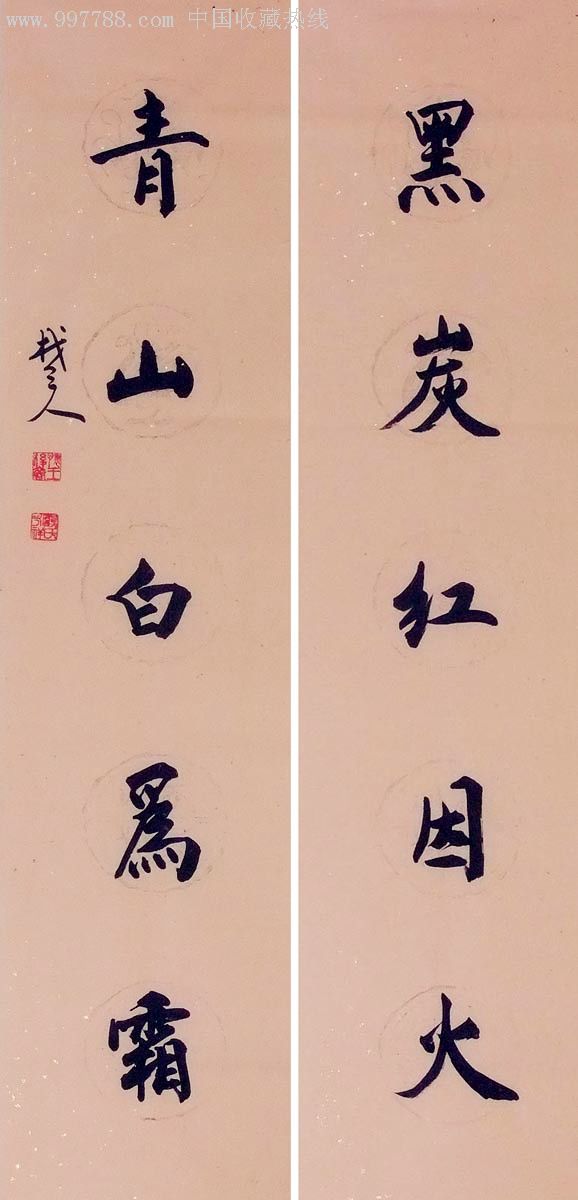 www.997788.com 中国收藏热线
黑炭红因火
青山白為霜